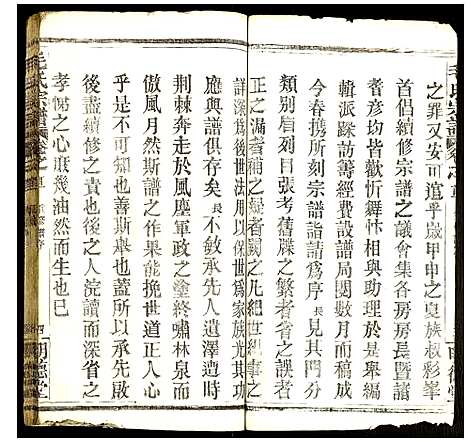 之罪又安可逭乎歲甲申之夏族叔彩峯
首倡續修宗譜之議會集各房房長暨諸
耆彥均皆歡忻舞忭相與助理於是舉編
輯派踩訪籌經費設譜局閱數月而稿成
今春携所刻宗譜詣請為序長見其門分
類晰條刻目張考舊牒之繁者省之誤者
正之漏者補之疑者闕之凡紀世紀事之
詳深為後世法用以保世為家族光其功
應與譜俱存矣長不敏承先人遺澤遭時
荆棘奔走於風塵軍政之塗終嘯林泉而
傲風月然斯譜之作果能挽世道正人心
乎是不可知也善斯舉也蓋所以承先啟
後盡續修之責也後之人浣讀而深省之
孝悌之心庶幾油然而生也已
毛氏宗譜
明德堂